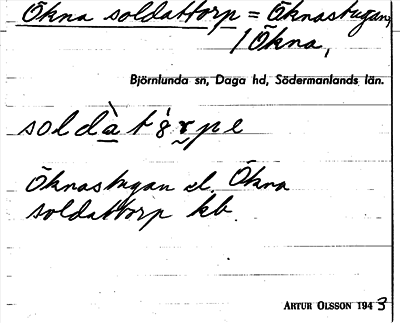 Ökna soldattorp = Öknastugan,
/ Ökna,
Björnlunda sn, Daga hd, Södermanlands län.
soldàtó̤rpe
Öknastugan el. Ökna
soldattorp kb.
ARTUR OLSSON 1943